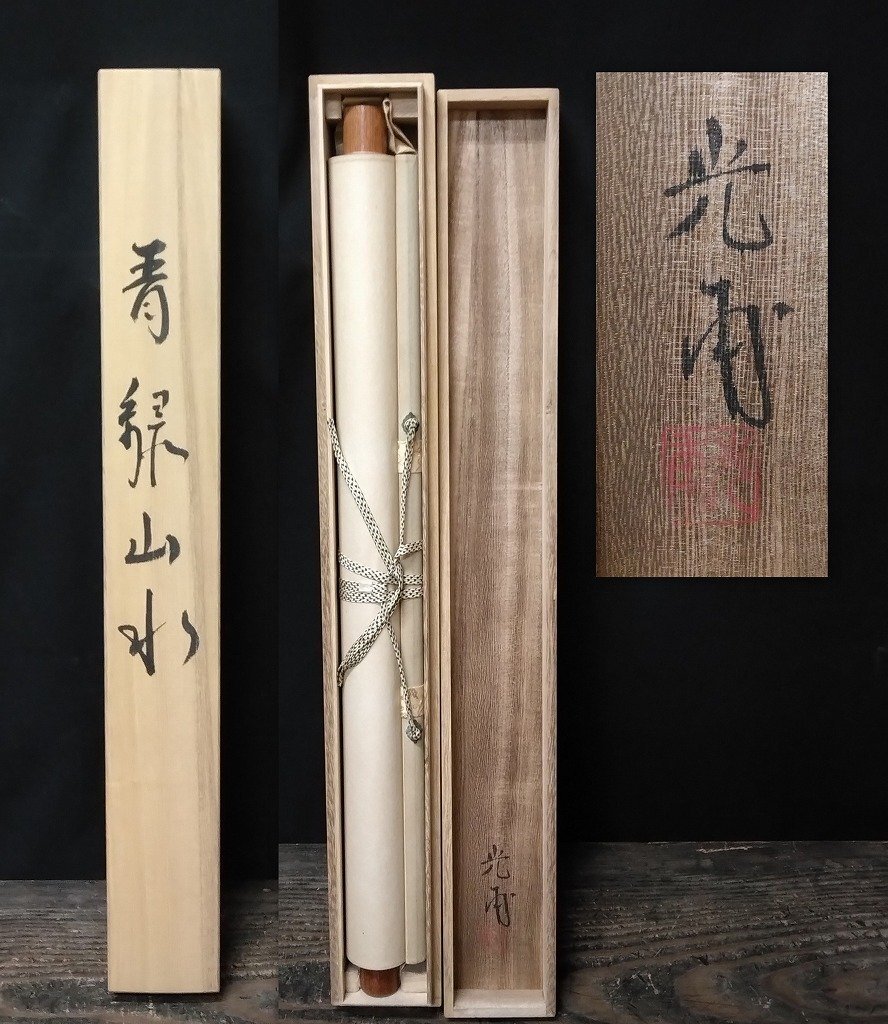 青緑山水
光甫
光甫